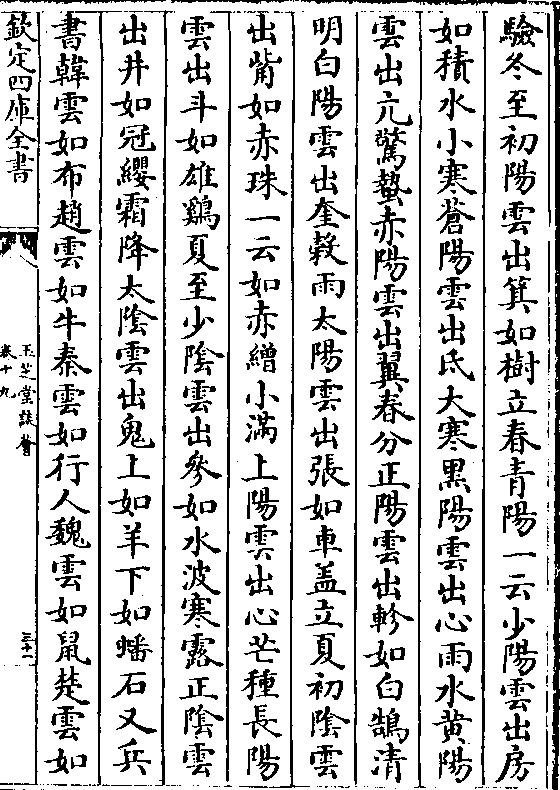 驗冬至初陽雲出箕如樹立春青陽一云少陽雲出房
如積水小寒蒼陽雲出氐大寒黒陽雲出心雨水黄陽
雲出亢驚蟄赤陽雲出翼春分正陽雲出軫如白鵠清
明白陽雲出奎穀雨太陽雲出張如車盖立夏初陰雲
出觜如赤珠一云如赤繒小滿上陽雲出心芒種長陽
雲出斗如雄鷄夏至少陰雲出參如水波寒露正陰雲
出井如冠纓霜降太陰雲出鬼上如羊下如蟠石又兵
書韓雲如布趙雲如牛秦雲如行人魏雲如鼠楚雲如
欽定四庫全書
玉芝堂談薈
卷十九
三十二